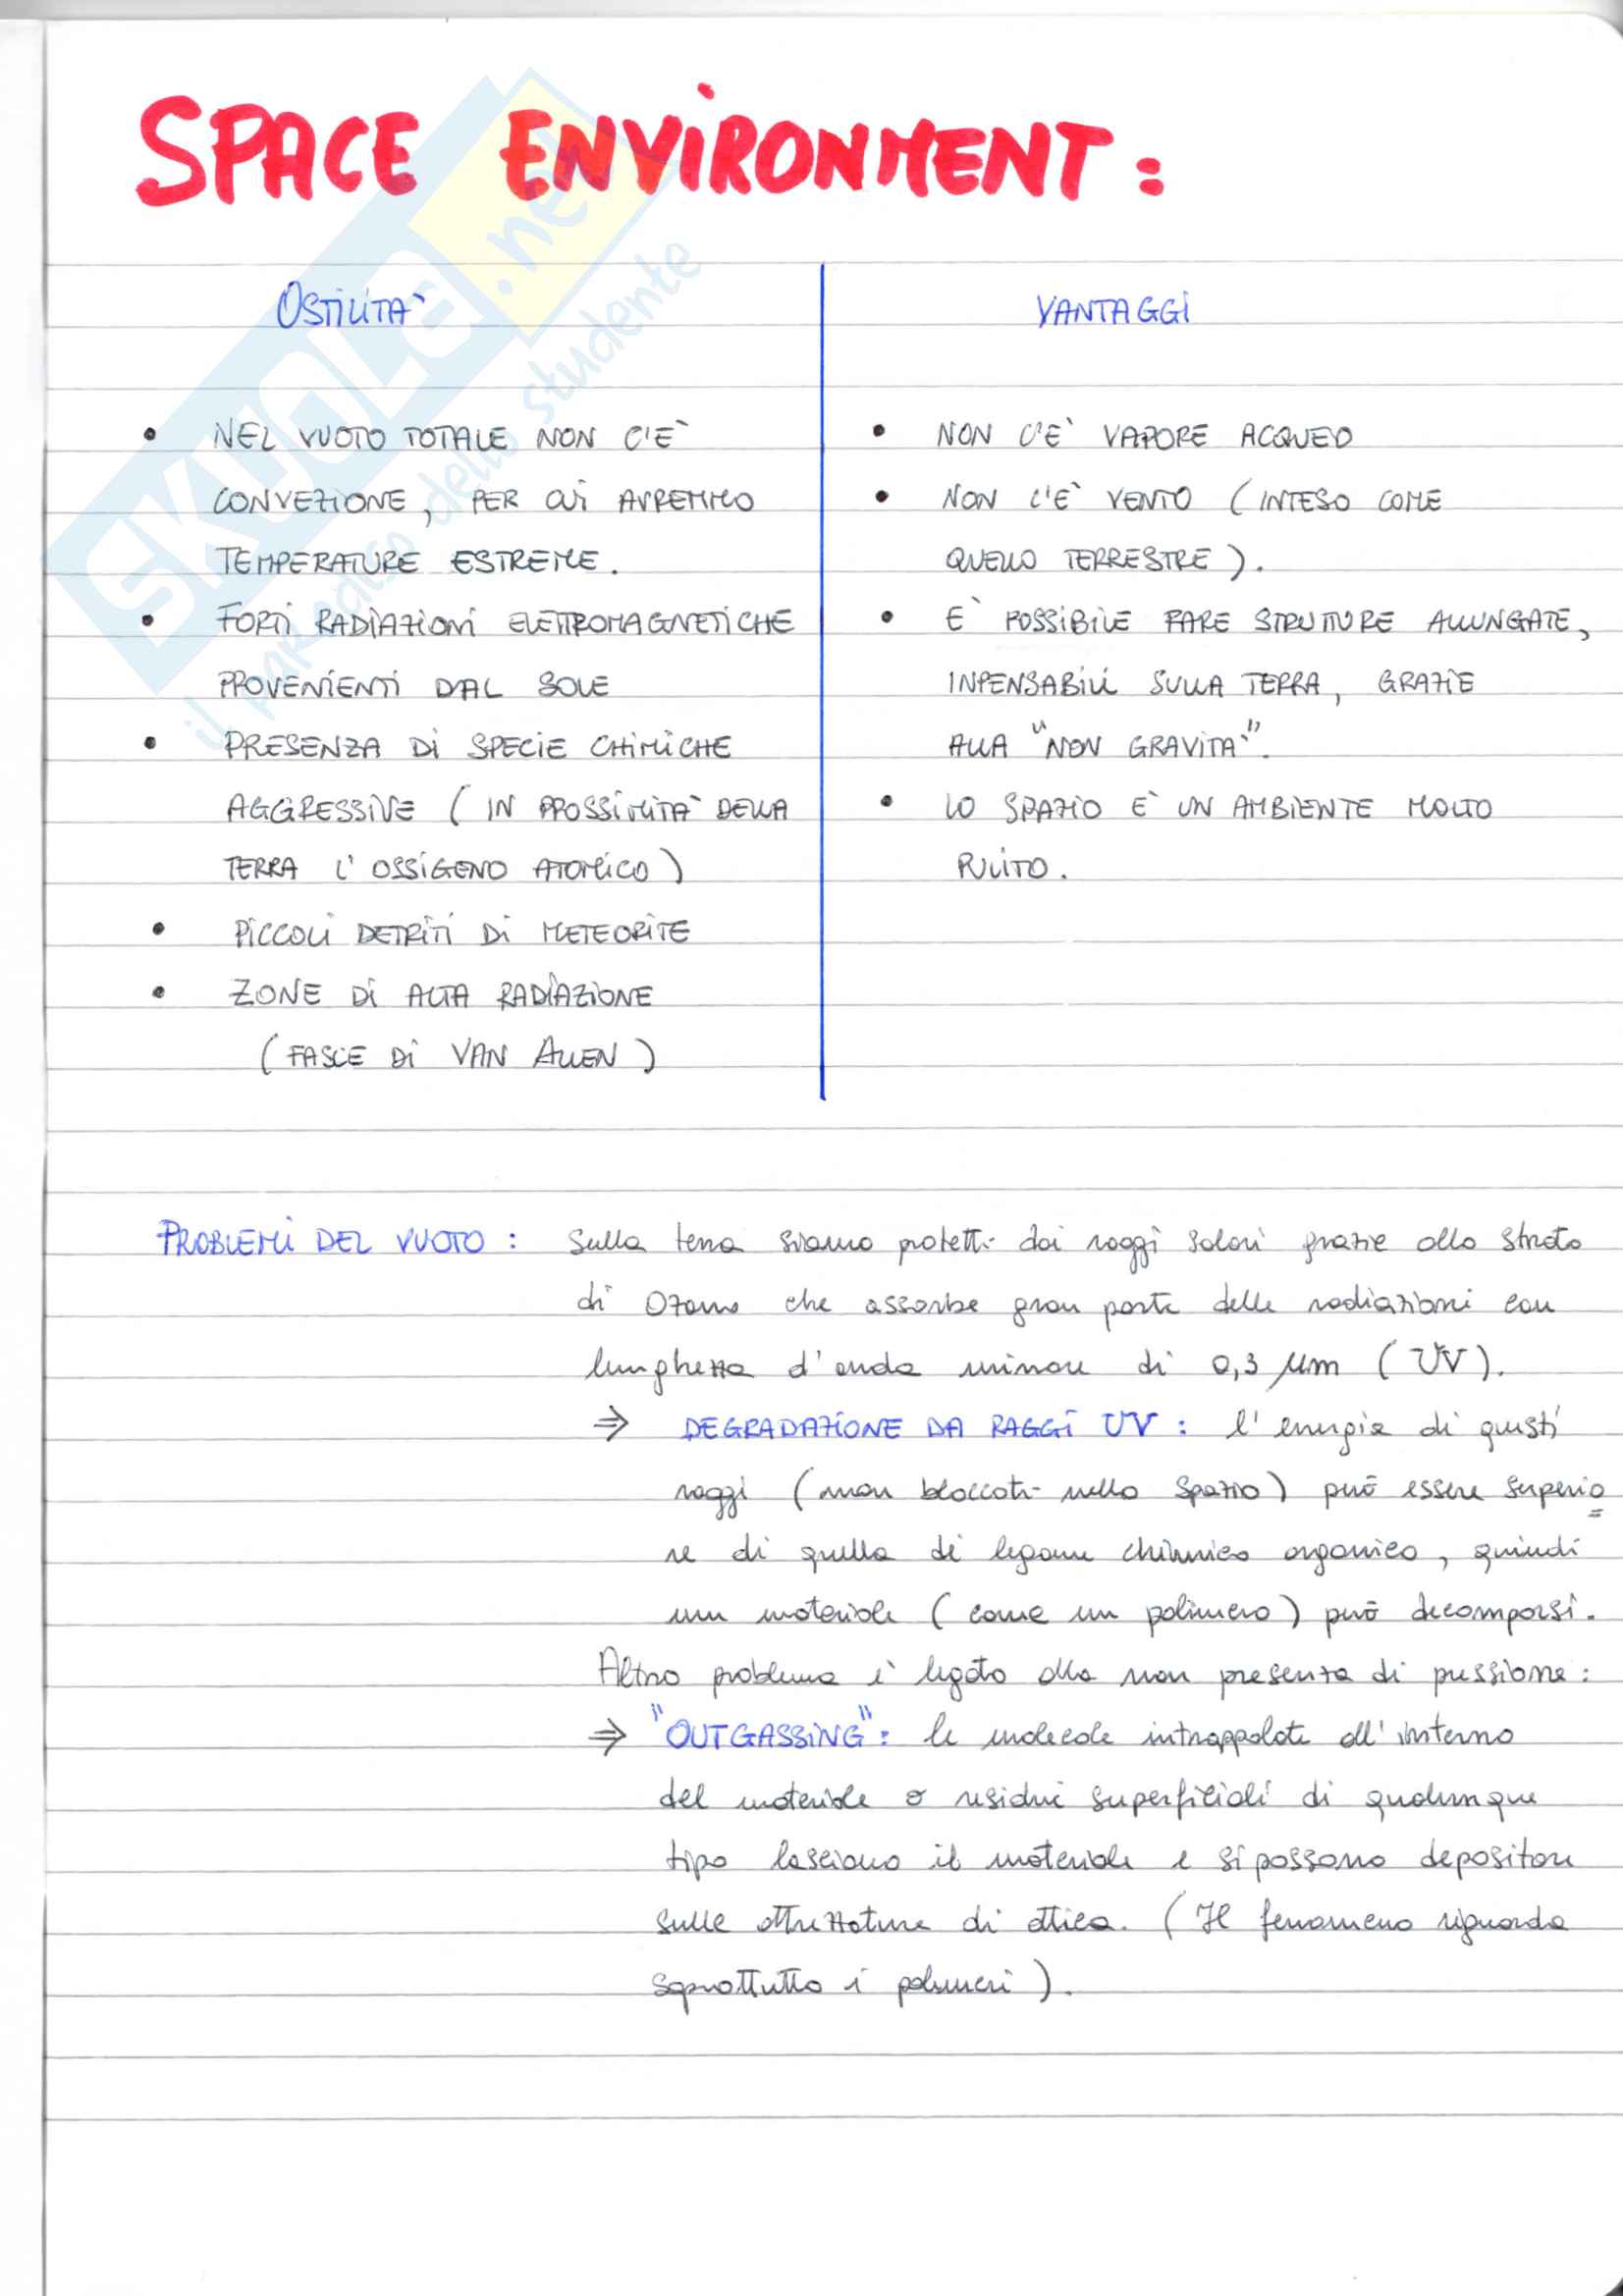 SPACE ENVIRONMENT:
OSTILITÀ
NEL VUOTO TOTALE NON C'È
CONVEZIONE, PER CUI AVREMMO
TEMPERATURE ESTREME.
FORTI RADIAZIONI ELETTROMAGNETICHE
PROVENIENTI DAL SOLE
PRESENZA DI SPECIE CHIMICHE
AGGRESSIVE (IN PROSSIMITÀ DELLA
TERRA L'OSSIGENO ATOMICO)
PICCOLI DETRITI DI METEORITE
ZONE DI ALTA RADIAZIONE
(FASCE DI VAN ALLEN)
VANTAGGI
NON C'È VAPORE ACQUEO
NON C'È VENTO (INTESO COME
QUELLO TERRESTRE).
È POSSIBILE FARE STRUTTURE ALLUNGATE,
INPENSABILI SULLA TERRA, GRAZIE
ALLA "NON GRAVITÀ".
LO SPAZIO È UN AMBIENTE MOLTO
PULITO.
PROBLEMI DEL VUOTO: Sulla terra siamo protetti dai raggi solari grazie allo strato
di Ozono che assorbe gran parte delle radiazioni con
lunghezza d'onda minore di 0,3 μm (UV).
⇒ DEGRADAZIONE DA RAGGI UV: l'energia di questi
raggi (non bloccati nello spazio) può essere superio
re di quella di legame chimico organico, quindi
un materiale (come un polimero) può decomporsi.
Altro problema è legato alla non presenza di pressione:
⇒ "OUTGASSING": le molecole intrappolate all'interno
del materiale o residui superficiali di qualunque
tipo lasciano il materiale e si possono depositare
sulle attrezzature di ottica. (Il fenomeno riguarda
soprattutto i polimeri).
SKUOLA.net
il paradiso dello studente